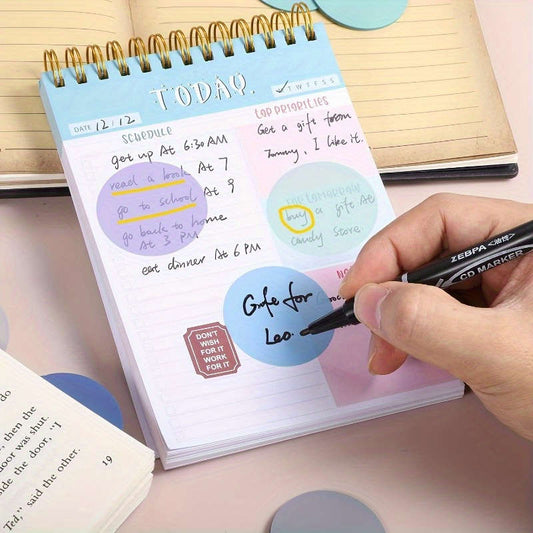 TODAY.
DATE 12/12
✓ T W T F S S
SCHEDULE
get up At 6:30 AM
read a book At 7
go to school At 9
go back to home
At 3 PM
eat dinner At 6 PM
TOP PRIORITIES
Get a gift from
I like it.
TOP TOMORROW
buy a gift At
candy store.
Gife for
Leo.
DON'T
WISH
FOR IT
WORK
FOR IT
ZEBRA <油性>
CD MARKER
do
, then the
door was shut.
side the door, "I
Ted," said the other.
19